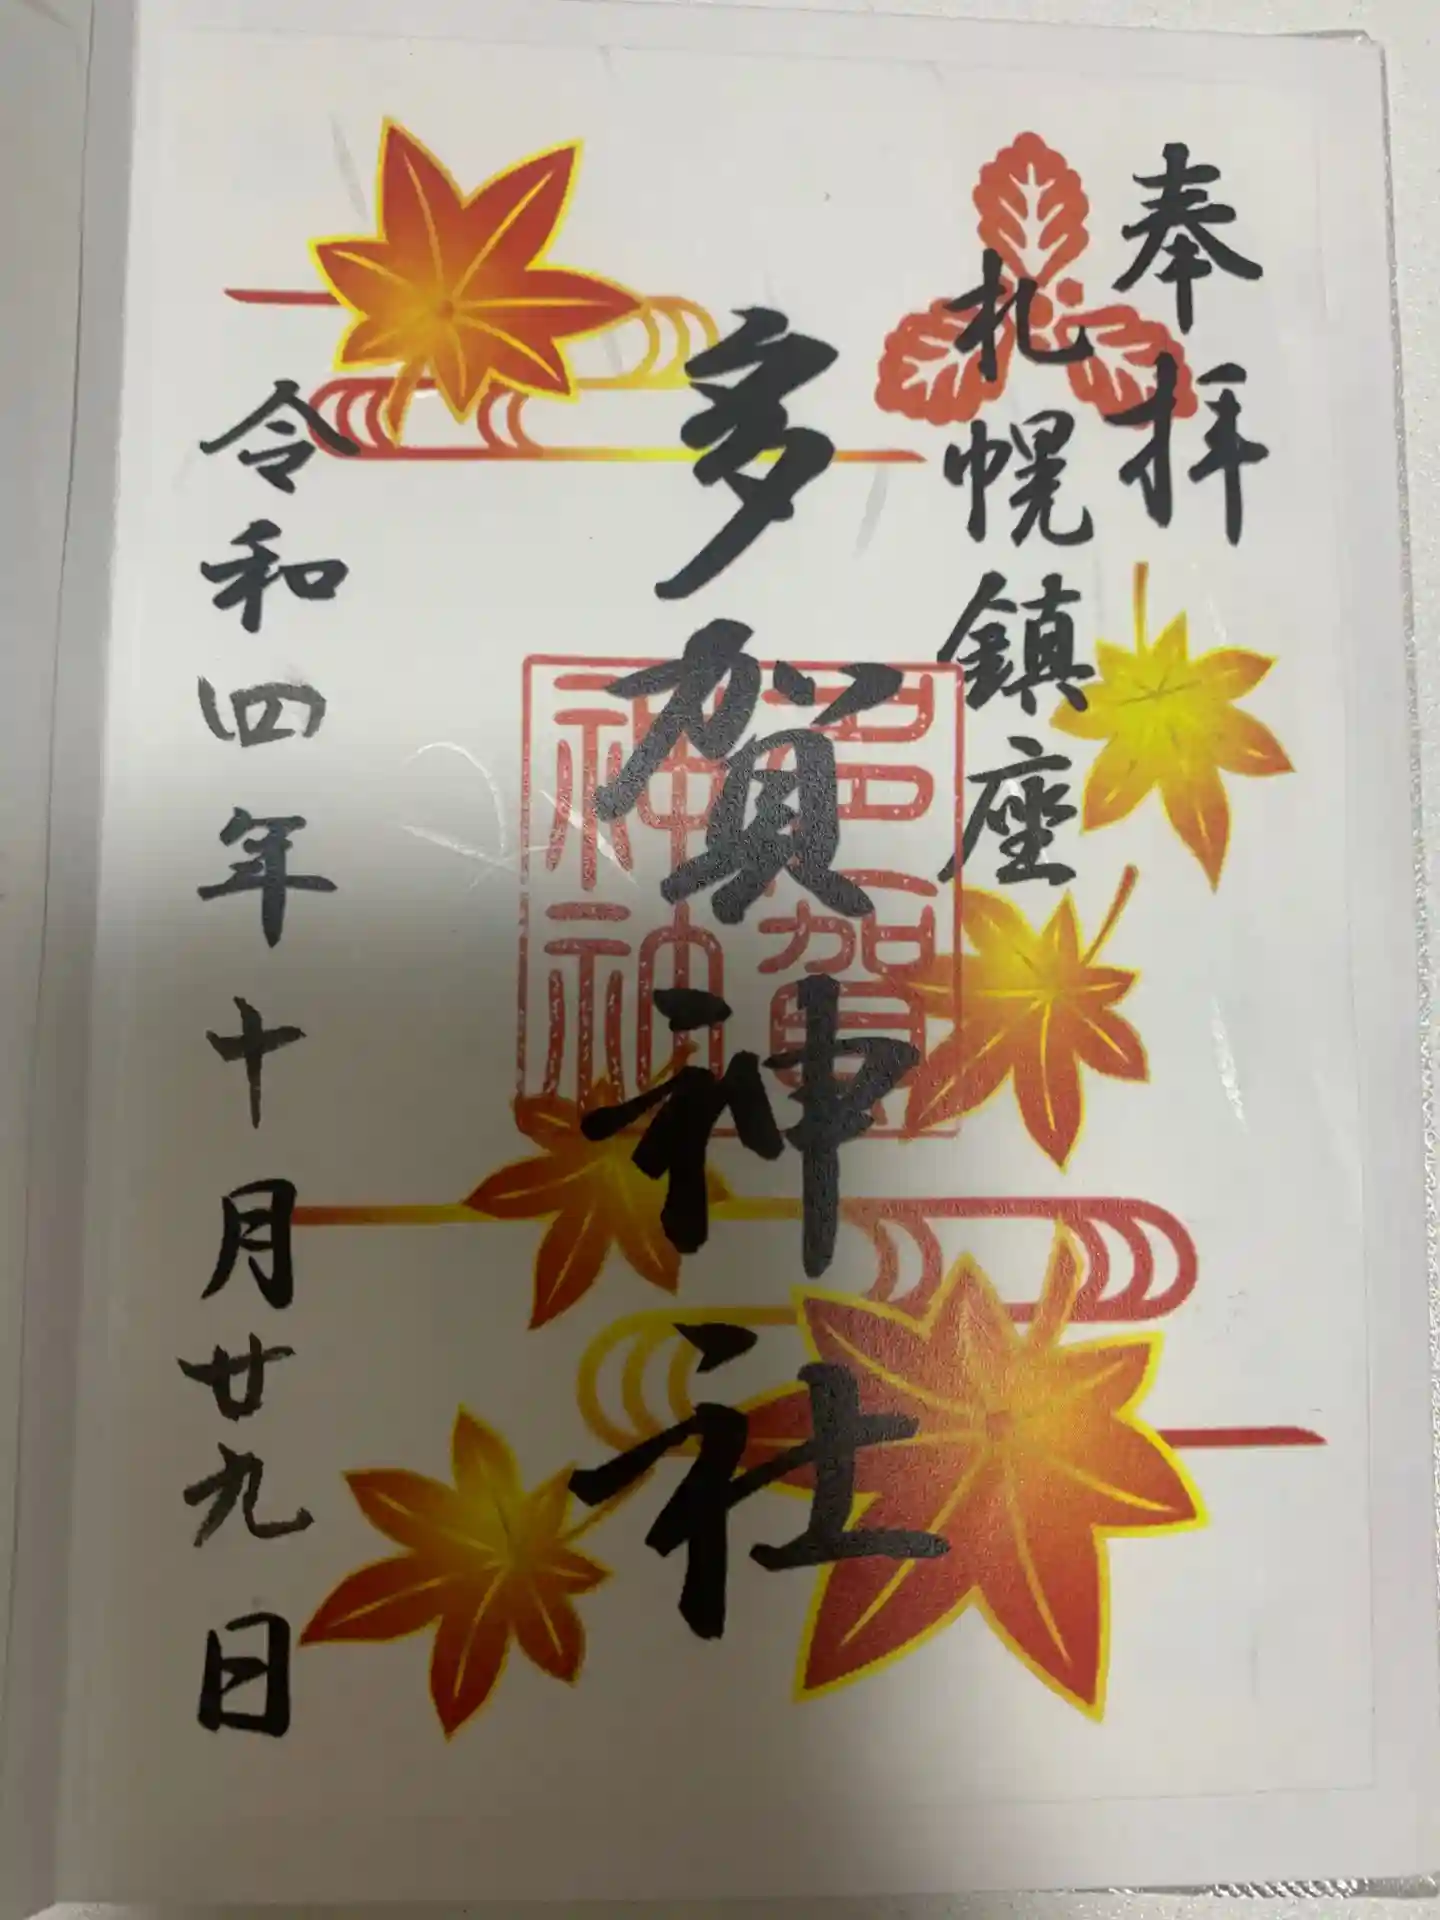 奉拝
札幌鎮座
多賀神社
多賀
神社
令和四年十月廿九日